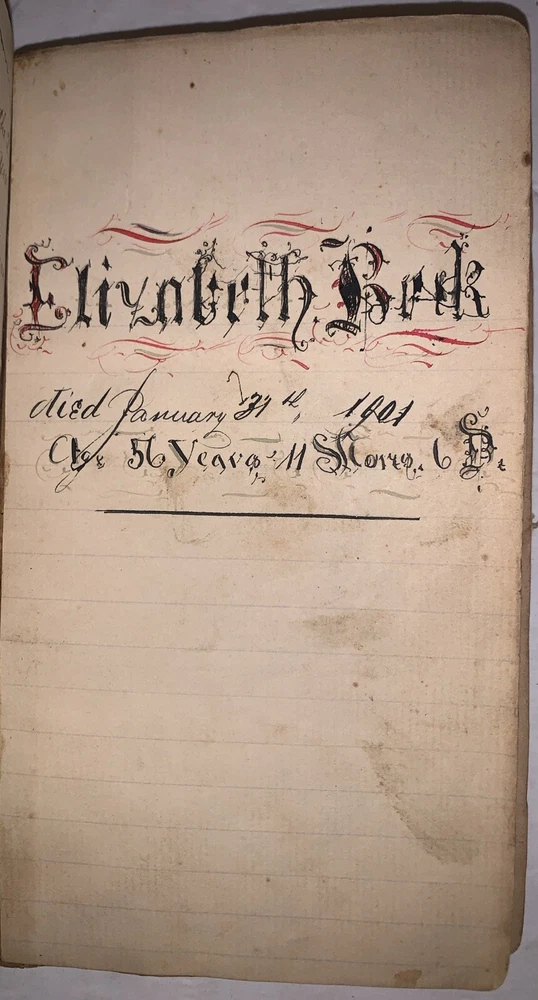 Elizabeth Beek
died January 31st, 1901
Age 56 Years, 11 Mons. 6 D.